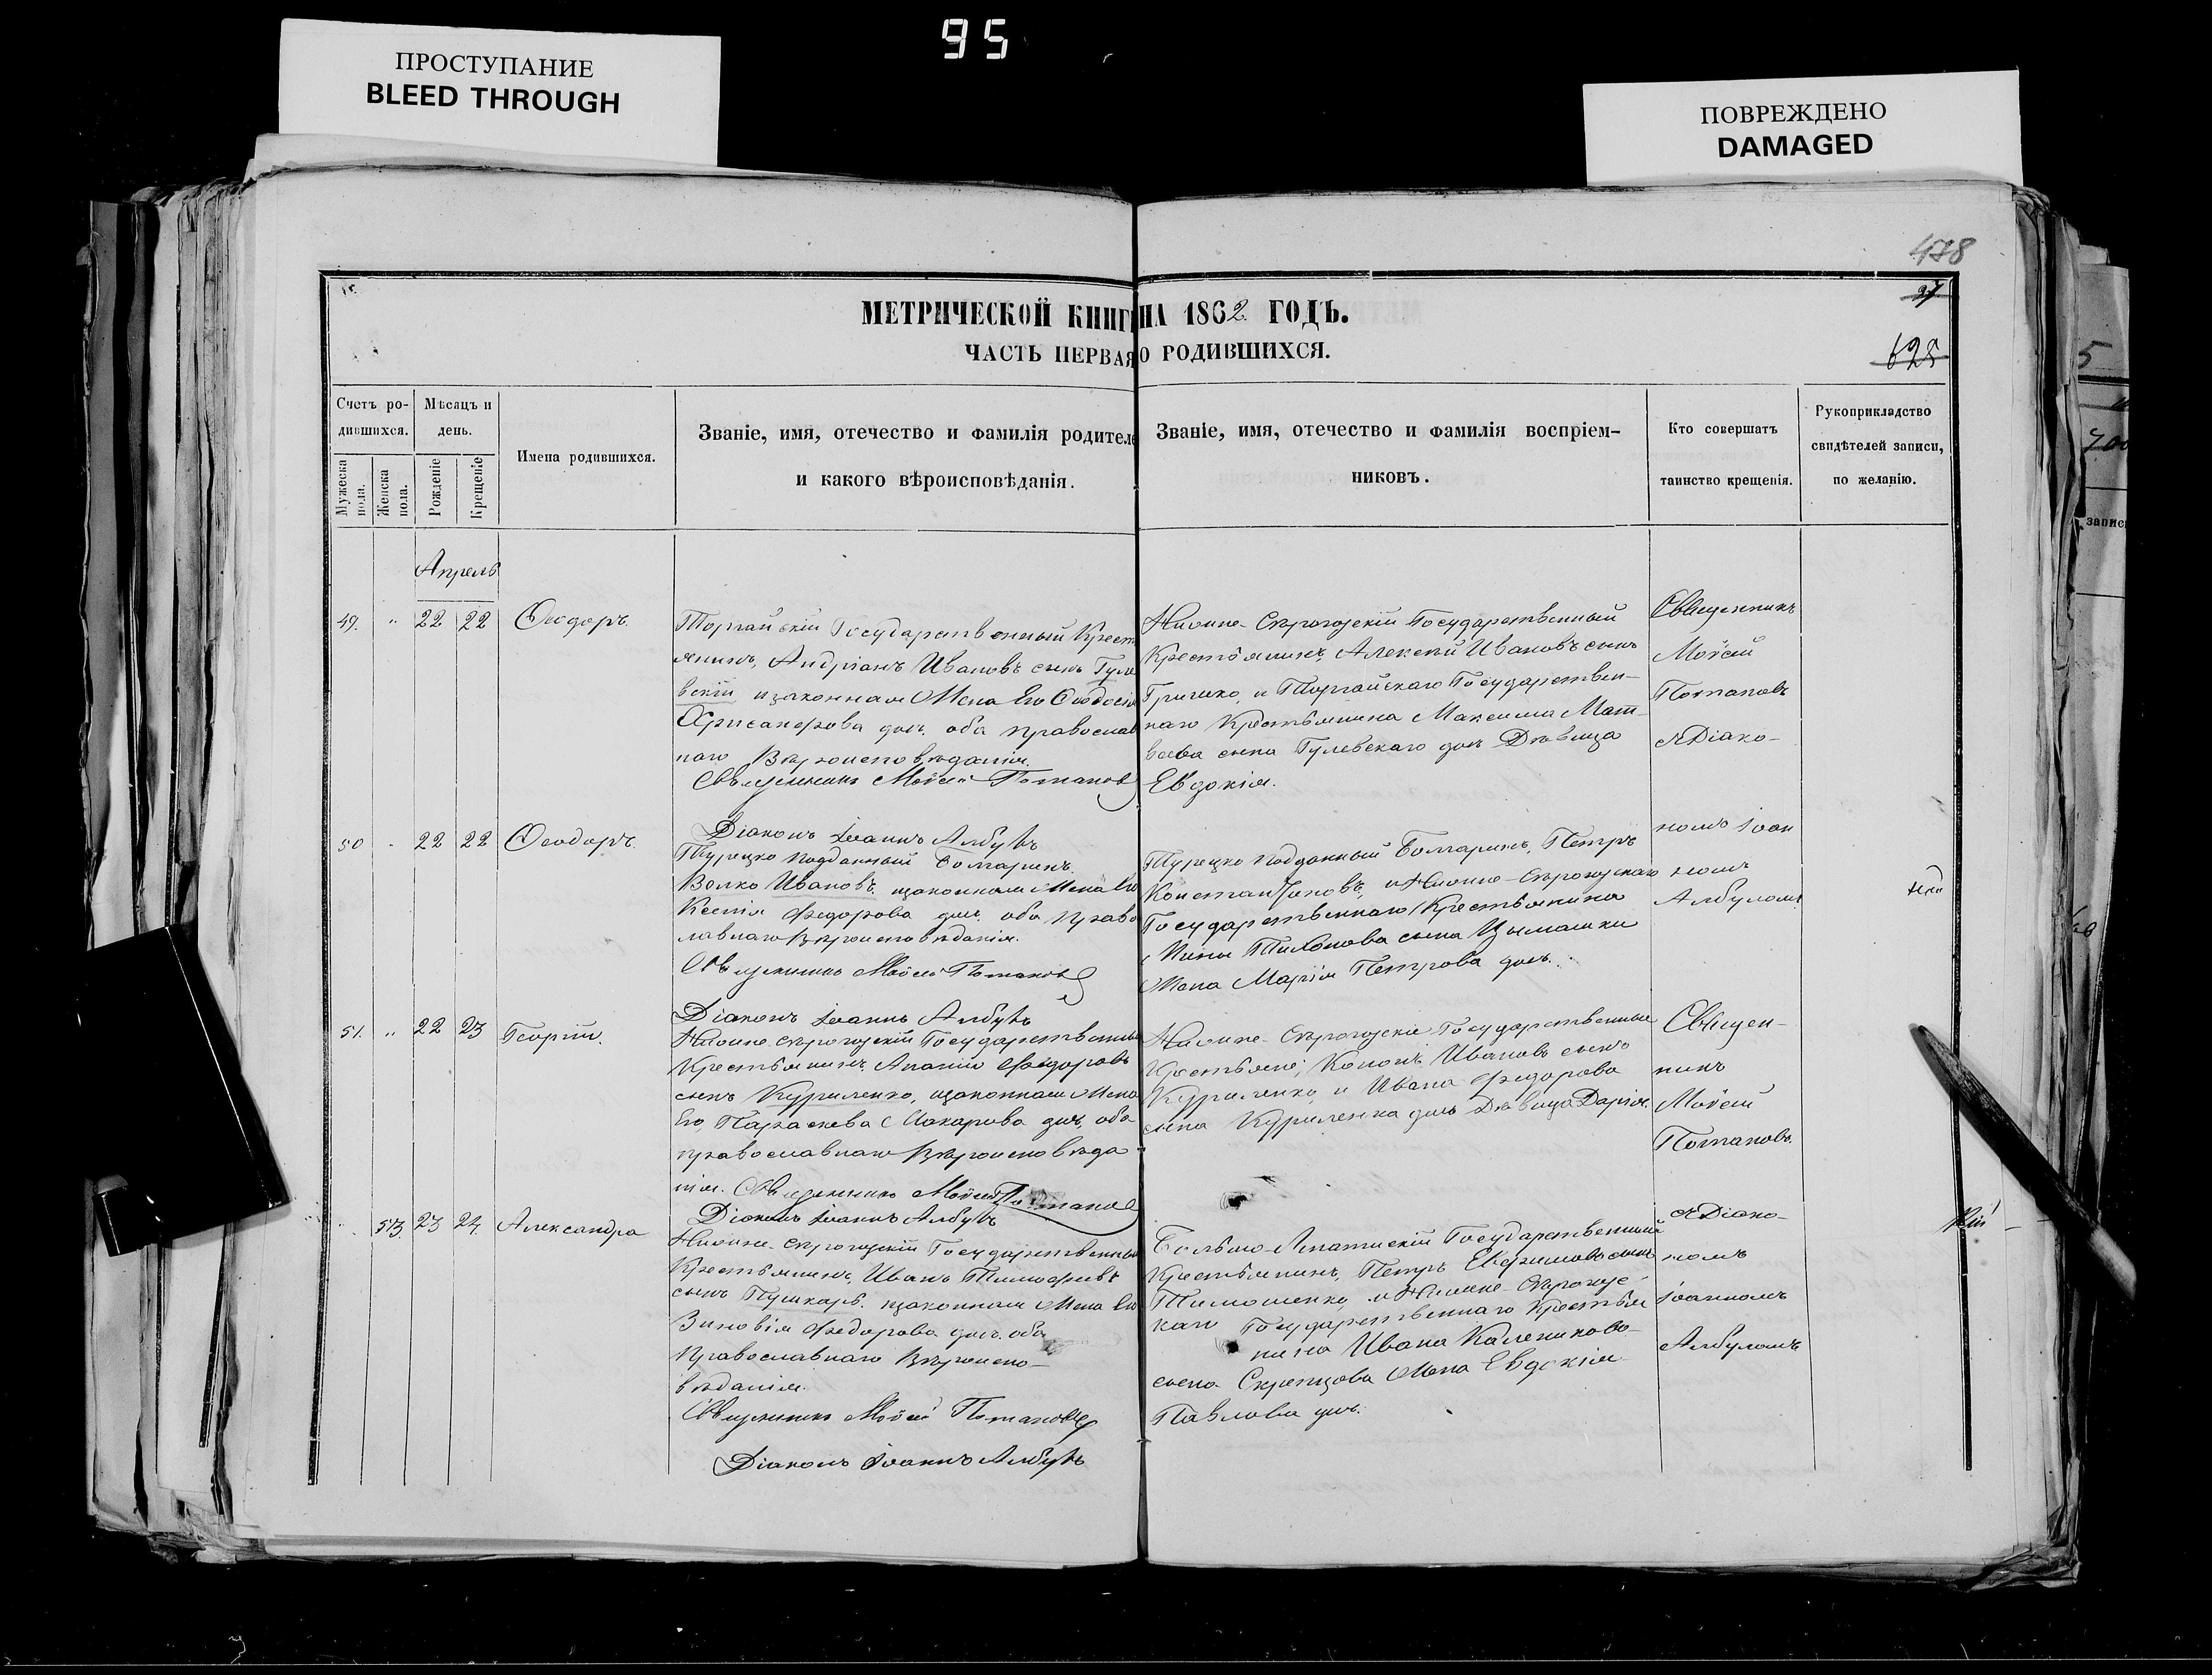 95
ПРОСТУПАНИЕ
BLEED THROUGH
ПОВРЕЖДЕНО
DAMAGED
478
МЕТРИЧЕСКОЙ КНИГ НА 1862 ГОДЪ.
ЧАСТЬ ПЕРВАЯ О РОДИВШИХСЯ.
27
625
Счетъ ро-
дившихся.
Мѣсяцъ и
день.
Мужеска
пола.
Женска
пола.
Рожденіе
Крещеніе
Имена родившихся.
Званіе, имя, отечество и фамилія родителе
и какого вѣроисповѣданія.
Званіе, имя, отечество и фамилія воспріем-
никовъ.
Кто совершатъ
таинство крещенія.
Рукоприкладство
свидѣтелей записи,
по желанію.
Апрель
49. " 22 22 Ѳеодоръ.
Торгайскій Государственный Крест
янинъ, Андріанъ Ивановъ сынъ Гуле
вскій изаконная Жена Его Ѳеодосія
Хрисанфова доч. оба православ
наго Вѣроисповѣданія.
Священникъ Мойсей Потаповъ
Діаконъ Іоаннъ Албулъ
Нижне-Сѣрогозскій Государственный
Крестьянинъ, Алексѣй Ивановъ сынъ
Гришко, и Торгайскаго Государствен-
наго Крестьянина Максима Мат-
веева сына Гулевскаго доч. Дѣвица
Евдокія.
Священникъ
Мойсей
Потаповъ
съ Діако-
номъ Іоан
номъ
Албуломъ
50 " 22 22 Ѳеодоръ.
Турецко подданный Болгаринъ,
Волко Ивановъ, изаконная Жена Его
Ксенія Федорова доч. оба Право
славнаго Вѣроисповѣданія.
Священникъ Мойсей Потаповъ
Діаконъ Іоаннъ Албулъ
Турецко подданный Болгаринъ, Петръ
Константиновъ, и Нижне-Сѣрогозскаго
Государственнаго Крестьянина
Тихонова сына
Жена Марія Петрова доч.
51. " 22 23 Георгій.
Нижне-Сѣрогозскій Государственный
Крестьянинъ, Ананій Федоровъ
сынъ Куриленко, изаконная Жена
Его, Параскева Макарова доч, оба
православнаго Вѣроисповѣда
нія. Священникъ Мойсей Потаповъ
Діаконъ Іоаннъ Албулъ
Нижне-Сѣрогозскіе Государственные
Крестьяне, Кононъ Ивановъ сынъ
Куриленко, и Ивана Федорова
сына Куриленка доч Дѣвица Дарія.
Священ-
никъ
Мойсей
Потаповъ
съ Діако-
номъ
Іоанномъ
Албуломъ
53. 23 24. Александра
Нижне-Сѣрогозскій Государственный
Крестьянинъ, Иванъ Тимофеевъ
сынъ Пушкарь. изаконная Жена Его
Зиновія Федорова доч. оба
Православнаго Вѣроиспо-
вѣданія.
Священникъ Мойсей Потаповъ
Діаконъ Іоаннъ Албулъ
Больше-Лепатискій Государственный
Крестьянинъ, Петръ Евфимовъ сынъ
Тимошенко, и Нижне-Сѣрогозс
каго Государственнаго Крестья
нина Ивана Каленикова
сына Скрепцова Жена Евдокія
Павлова доч.